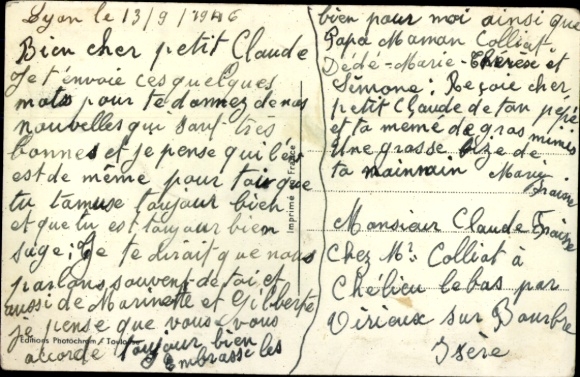 Lyon le 13/9/1946
Bien cher petit Claude
Je t'envoie ces quelques
mots pour te donnez de nos
nouvelles qui sont très
bonnes et je pense qu'il en
est de même pour toi que
tu tamuse toujour bien
et que tu est toujour bien
sage; Je te dirait que nous
parlons souvent de toi et
aussi de Marinette et Gilberte
je pense que vous vous
accorde toujour bien
Embrasse les
bien pour moi ainsi que
Papa Maman Colliat
Dédé-Marie-Therèse et
Simone; Reçoie cher
petit Claude de ton pépé
et ta memé de gros mimis
Une grosse bize de
ta mainrain Mary
Fraisse
Monsieur Claude Fraisse
Chez Mr Colliat à
Chélieu le bas par
Virieux sur Bourbre
Isère
Imprimé en France
Editions Photochrom / Toulouse